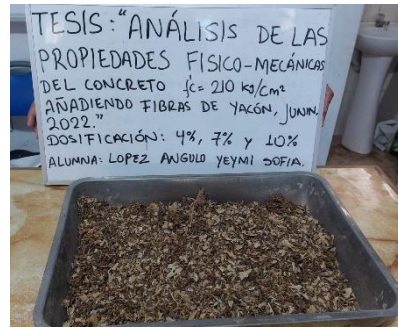 TESIS: "ANÁLISIS DE LAS
PROPIEDADES FISICO-MECÁNICAS
DEL CONCRETO f'c= 210 kg/cm²
AÑADIENDO FIBRAS DE YACÓN, JUNIN,
2022."
DOSIFICACIÓN: 4%, 7% y 10%
ALUMNA: LOPEZ ANGULO YEYMI SOFIA.